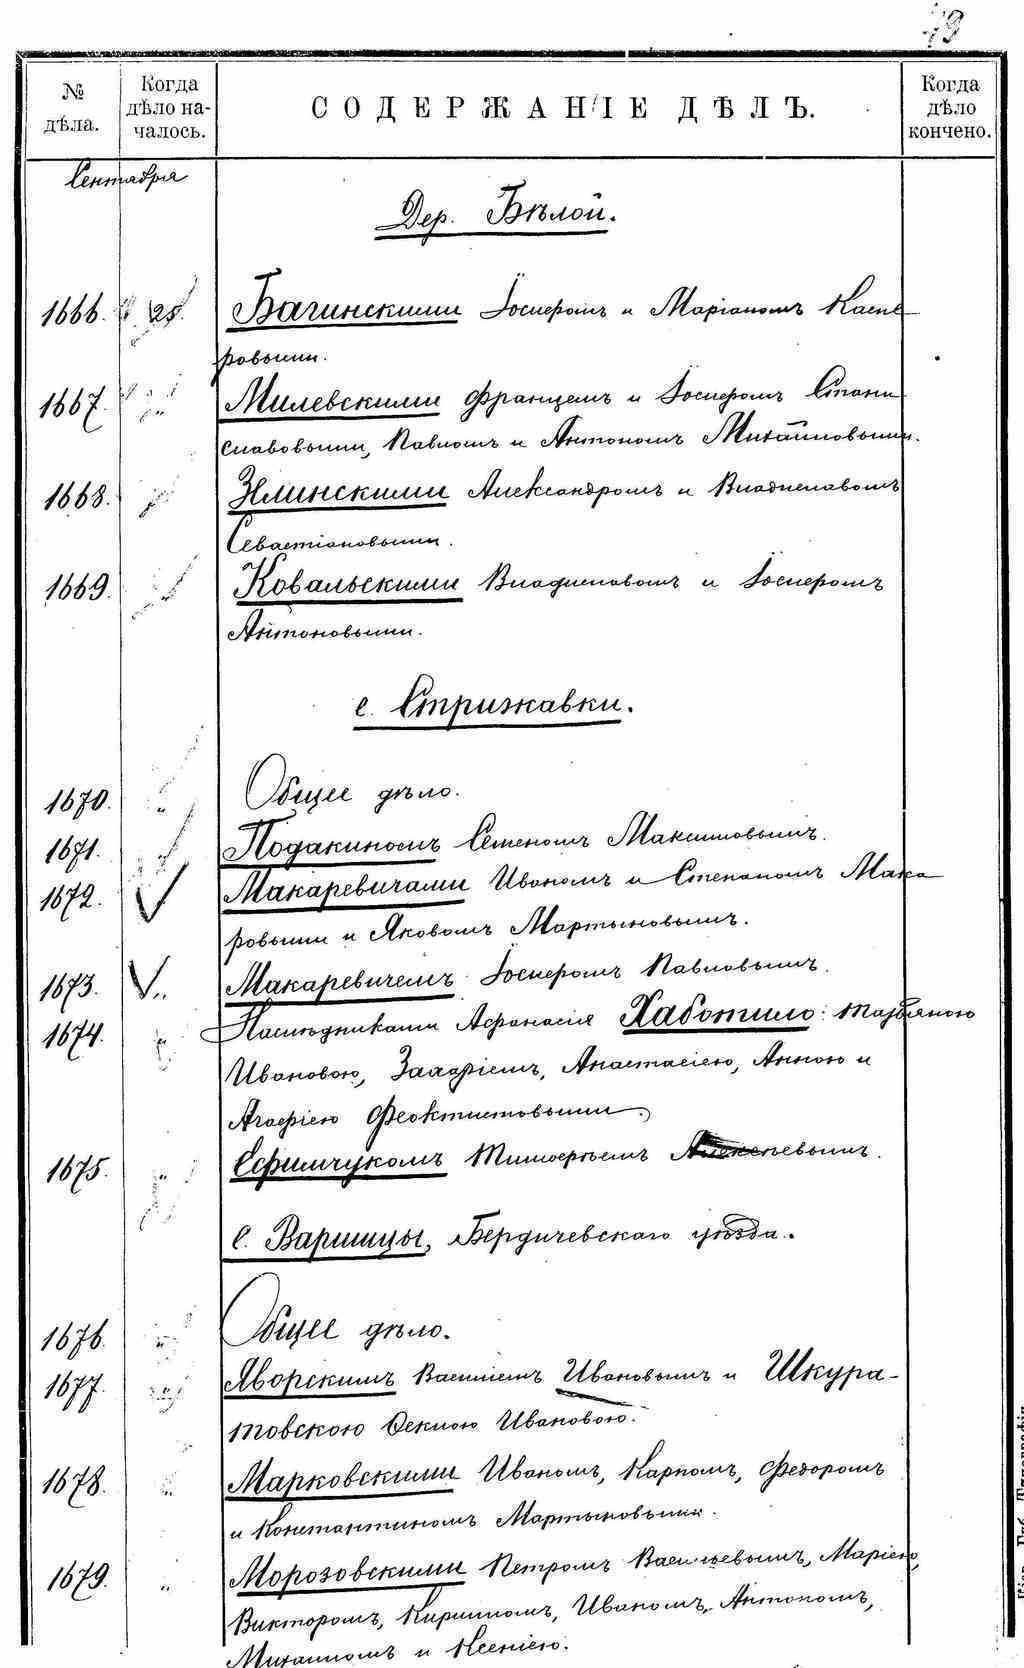 79
№ дѣла.
Когда дѣло началось.
СОДЕРЖАНІЕ ДѢЛЪ.
Когда дѣло кончено.
Сентября
Дер. Бѣлой.
1666. 25. Багинскими Іосифомъ и Маріаномъ Каспе-
ровыми.
1667. " Милевскими Францемъ и Іосифомъ Стани
славовыми, Павломъ и Антономъ Михайловыми.
1668. " Илинскими Александромъ и Владиславомъ
Севастіановыми.
1669. " Ковальскими Владиславомъ и Іосифомъ
Антоновыми.
с. Стрижавки.
1670. " Общее дѣло.
1671. " Подакиномъ Семеномъ Максимовымъ.
1672. Макаревичами Иваномъ и Степаномъ Мака
ровыми и Яковомъ Мартыновымъ.
1673. " Макаревичемъ Іосифомъ Павловымъ.
1674. " Наслѣдниками Афанасія Хаботило: Татьяною
Ивановою, Захаріемъ, Анастасіею, Анною и
Агафіею Феоктистовыми.
1675. " Ефимчукомъ Тимофѣемъ Алексѣевымъ.
с. Варшицы, Бердичевскаго уѣзда.
1676. " Общее дѣло.
1677. " Яворскимъ Василіемъ Ивановымъ и Шкура-
товскою Феклою Ивановою.
1678. " Марковскими Иваномъ, Карпомъ, Федоромъ
и Константиномъ Мартыновыми.
1679. " Морозовскими Петромъ Васильевымъ, Маріею,
Викторомъ, Кириломъ, Иваномъ, Антономъ,
Михаиломъ и Ксеніею.
Губ. Типографія